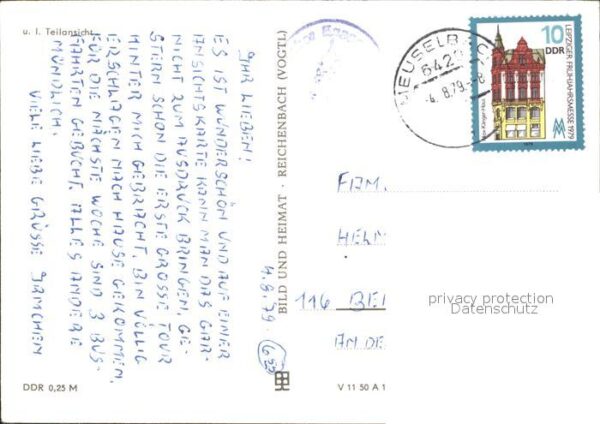 u. l. Teilansicht
IHR LIEBEN!
ES IST WUNDERSCHÖN UND AUF EINER
ANSICHTSKARTE KANN MAN DAS GAR-
NICHT ZUM AUSDRUCK BRINGEN, GE-
STERN SCHON DIE ERSTE GROSSE TOUR
HINTER MICH GEBRACHT, BIN VÖLLIG
ERSCHLAGEN NACH HAUSE GEKOMMEN,
FÜR DIE NÄCHSTE WOCHE SIND 3 BUS-
FAHRTEN GEBUCHT, ALLES ANDERE
MÜNDLICH.
VIELE LIEBE GRÜSSE
4.8.79
DDR 0,25 M
BILD UND HEIMAT · REICHENBACH (VOGTL)
V 11 50 A 1
MEUSELB
6429
-4.8.79.-8
10
DDR
LEIPZIGER FRÜHJAHRSMESSE 1979
MM
FAM.
HELM
116 BE
AN DE
privacy protection
Datenschutz